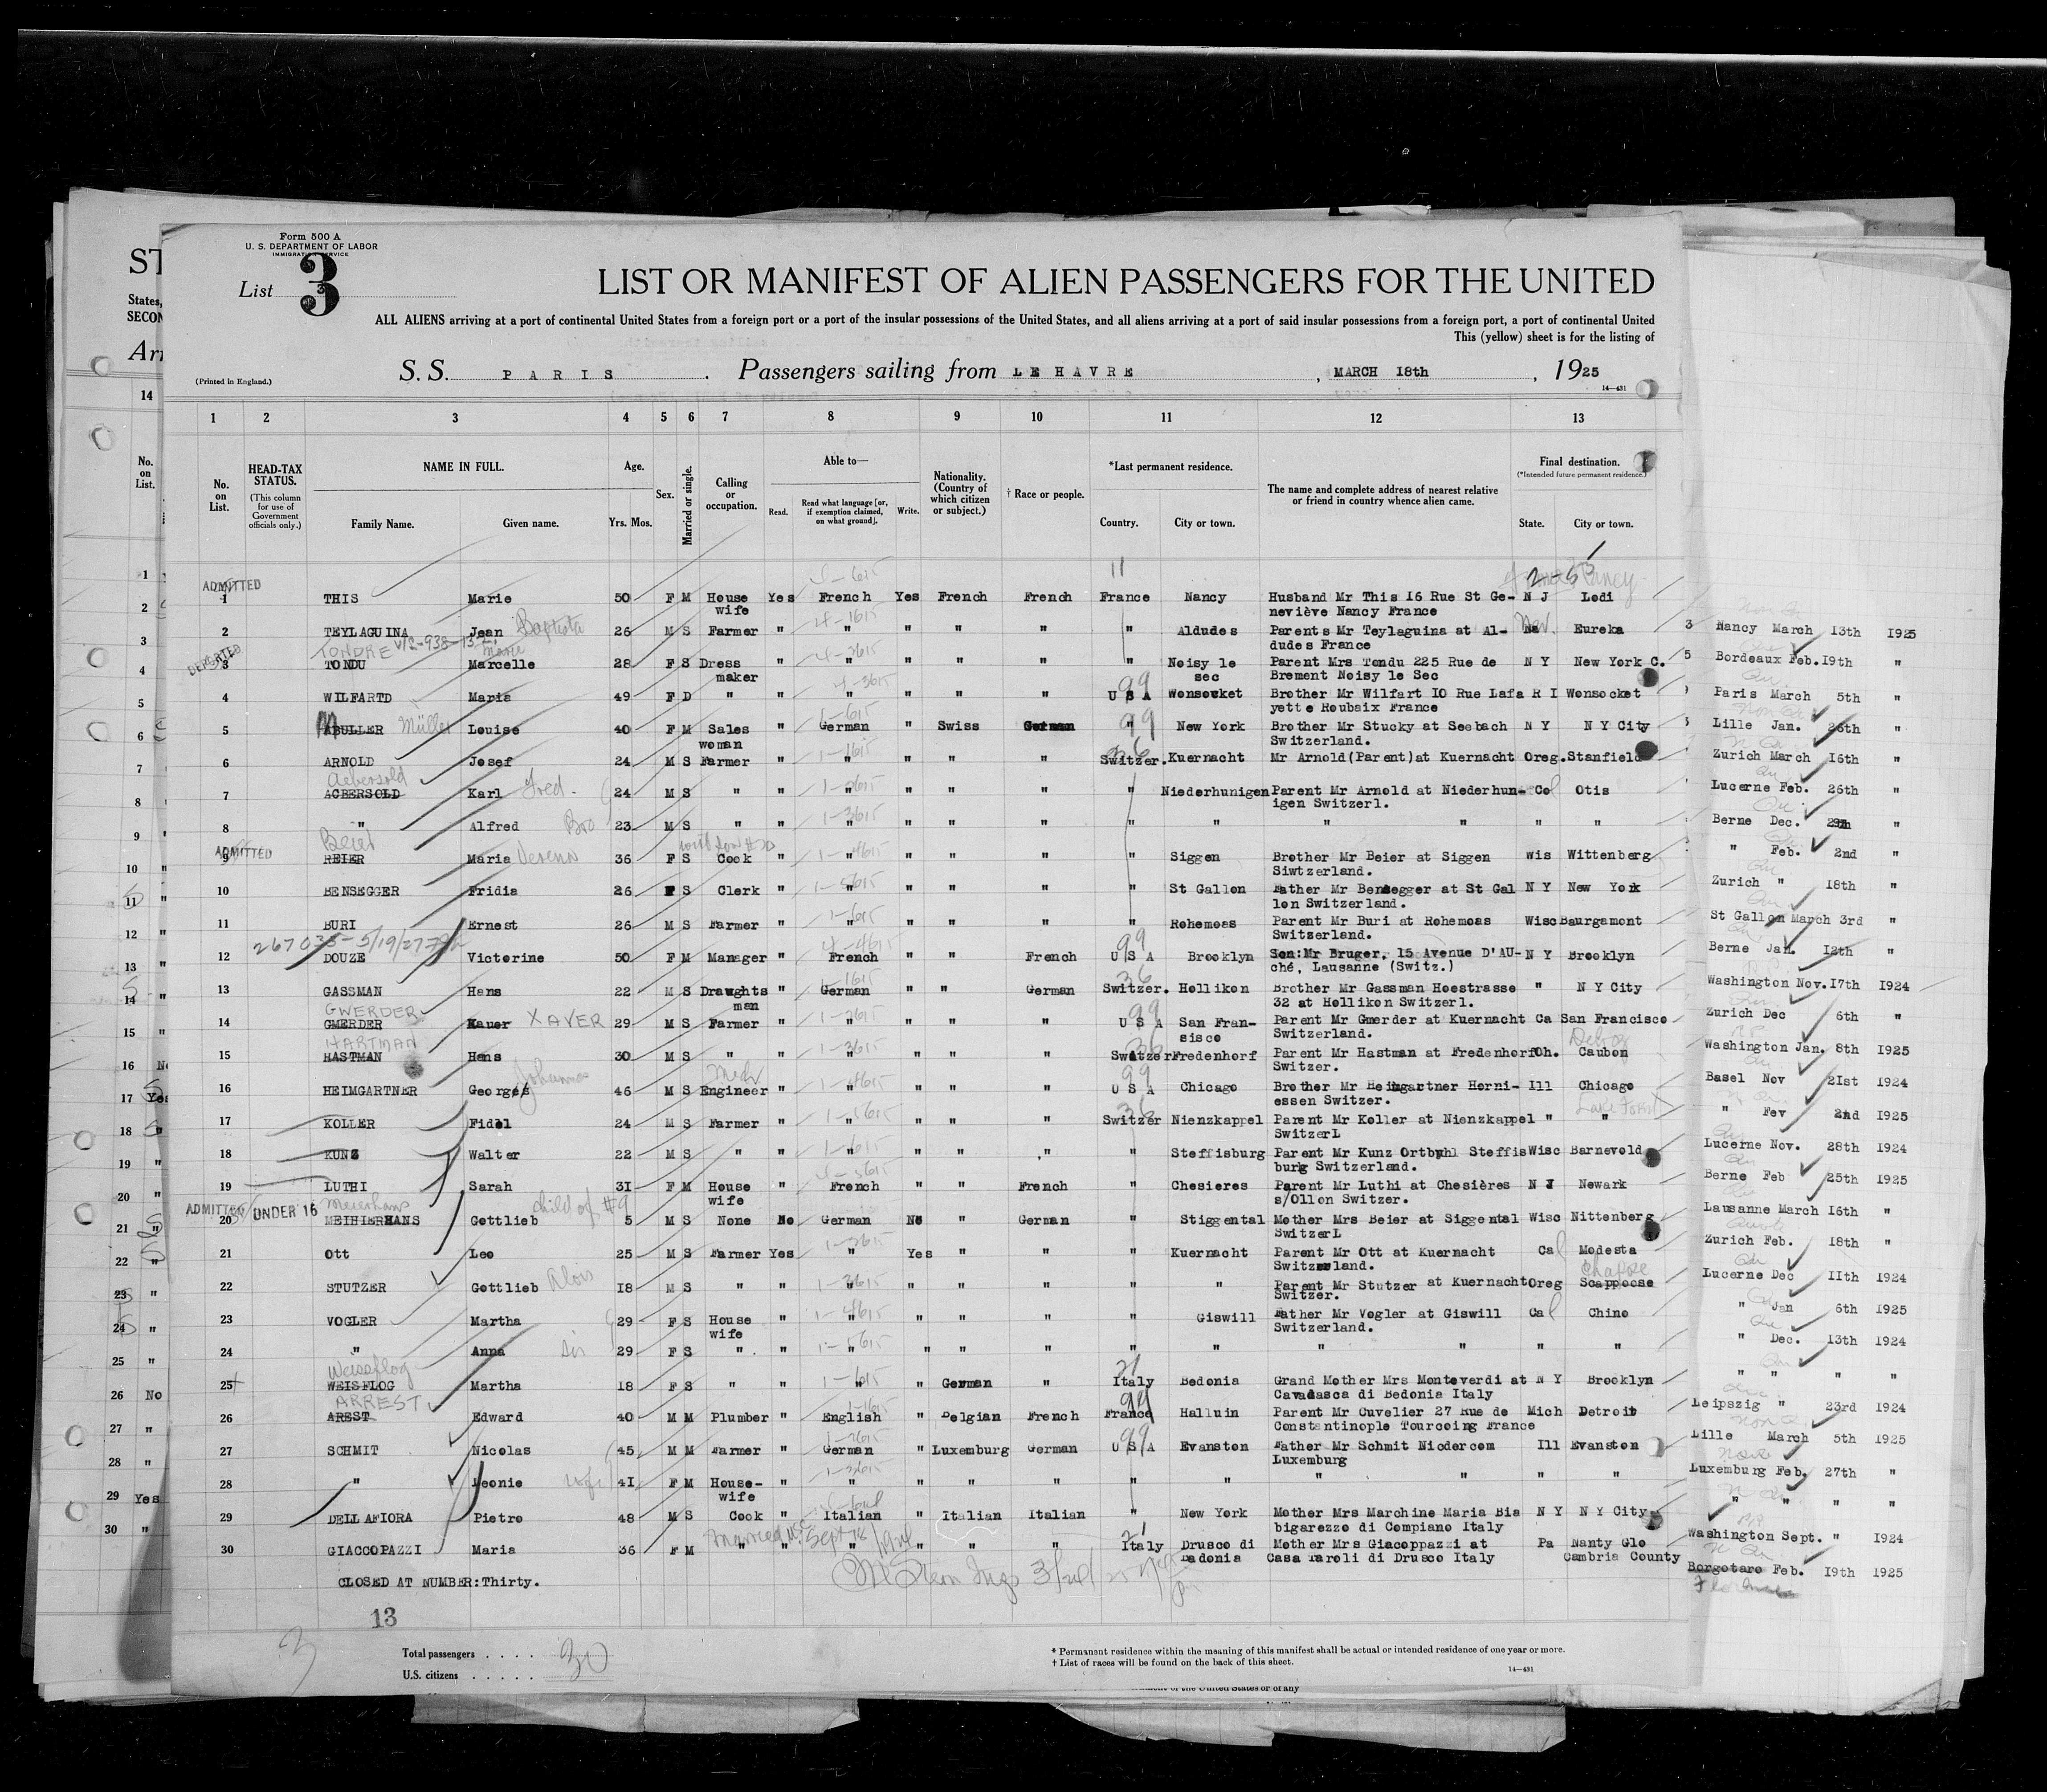 Form 500 A
U. S. DEPARTMENT OF LABOR
IMMIGRATION SERVICE
List 3
LIST OR MANIFEST OF ALIEN PASSENGERS FOR THE UNITED
ALL ALIENS arriving at a port of continental United States from a foreign port or a port of the insular possessions of the United States, and all aliens arriving at a port of said insular possessions from a foreign port, a port of continental United
This (yellow) sheet is for the listing of
(Printed in England.)
S. S. PARIS. Passengers sailing from LE HAVRE, MARCH 18th, 1925
14—431
1 2 3 4 5 6 7 8 9 10 11 12 13
No. on List. HEAD-TAX STATUS. (This column for use of Government officials only.) NAME IN FULL. Family Name. Given name. Age. Yrs. Mos. Sex. Married or single. Calling or occupation. Able to— Read. Read what language [or, if exemption claimed, on what ground]. Write. Nationality. (Country of which citizen or subject.) † Race or people. *Last permanent residence. Country. City or town. The name and complete address of nearest relative or friend in country whence alien came. Final destination. (*Intended future permanent residence.) State. City or town.
ADMITTED
1 THIS Marie 50 F M House wife Yes French Yes French French France Nancy Husband Mr This 16 Rue St Ge- neviève Nancy France N J Lodi
2 TEYLAGUINA Jean Baptista 26 M S Farmer " " " " " " Aldudes Parents Mr Teylaguina at Al- dudes France Nev. Eureka Nancy March 13th 1925
DEPORTED TONDRE Marie
3 TONDU Marcelle 28 F S Dress maker " " " " " " Noisy le sec Parent Mrs Tondu 225 Rue de Brement Noisy le Sec N Y New York C. Bordeaux Feb. 19th "
4 WILFARTD Maria 49 F D " " " " " " U S A Wonsocket Brother Mr Wilfart 10 Rue Lafa yette Roubaix France R I Wonsocket Paris March 5th "
5 ABULLER Müller Louise 40 F M Sales woman " German " Swiss German " New York Brother Mr Stucky at Seebach Switzerland. N Y N Y City Lille Jan. 26th "
6 ARNOLD Josef 24 M S Farmer " " " " " Switzer. Kuernacht Mr Arnold(Parent)at Kuernacht Oreg. Stanfield Zurich March 16th "
Aebersold
7 ACBERSOLD Karl Fred. 24 M S " " " " " " " Niederhunigen Parent Mr Arnold at Niederhun- igen Switzerl. Col Otis Lucerne Feb. 26th "
8 " Alfred Bro 23 M S " " " " " " " " " " " " Berne Dec. "
Beier
ADMITTED
9 REIER Maria Verena 36 F S Cook " " " " " " Siggen Brother Mr Beier at Siggen Siwtzerland. Wis Wittenberg " Feb. 2nd "
10 BENSEGGER Fridia 26 F S Clerk " " " " " " St Gallon Father Mr Bensegger at St Gal lon Switzerland. N Y New York Zurich " 18th "
11 BURI Ernest 26 M S Farmer " " " " " " Rohemoas Parent Mr Buri at Rohemoas Switzerland. Wisc Baurgamont St Gallon March 3rd "
12 DOUZE Victorine 50 F M Manager " French " " French U S A Brooklyn Son:Mr Bruger, 15 Avenue D'AU- ché, Lausanne (Switz.) N Y Brooklyn Berne Jan. 12th "
13 GASSMAN Hans 22 M S Draughts man " German " " German Switzer. Hollikon Brother Mr Gassman Hoestrasse 32 at Hollikon Switzerl. " N Y City Washington Nov. 17th 1924
GWERDER
14 GMERDER Kauer XAVER 29 M S Farmer " " " " " U S A San Fran- sisco Parent Mr Gmerder at Kuernacht Switzerland. Ca San Francisco Zurich Dec 6th "
HARTMAN
15 HASTMAN Hans 30 M S " " " " " " Switzer Fredenhorf Parent Mr Hastman at Fredenhorf Switzer. Oh. Caubon Washington Jan. 8th 1925
16 HEIMGARTNER Georges Johannes 46 M S Engineer " " " " " U S A Chicago Brother Mr Heimgartner Horni- essen Switzer. Ill Chicago Basel Nov 21st 1924
17 KOLLER Fidel 24 M S Farmer " " " " " Switzer Nienzkappel Parent Mr Koller at Nienzkappel SwitzerL " " Lake Forest " Fev 2nd 1925
18 KUNZ Walter 22 M S " " " " " " " Steffisburg Parent Mr Kunz Ortbuhl Steffis burg Switzerland. Wisc Barnevold Lucerne Nov. 28th 1924
19 LUTHI Sarah 31 F M House wife " French " " French " Chesieres Parent Mr Luthi at Chesières s/Ollon Switzer. N J Newark Berne Feb 25th 1925
ADMITTED UNDER 16 Meierhans child of #9
20 MEIHIERHANS Gottlieb 5 M S None No German No " German " Stiggental Mother Mrs Beier at Siggental SwitzerL Wisc Nittenberg Lausanne March 16th "
21 Ott Leo 25 M S Farmer Yes " Yes " " " Kuernacht Parent Mr Ott at Kuernacht Switzerland. Cal Modesta Zurich Feb. 18th "
22 STUTZER Gottlieb Alois 18 M S " " " " " " " " Parent Mr Stutzer at Kuernacht Switzer. Oreg Scappoose Lucerne Dec 11th 1924
23 VOGLER Martha 29 F S House wife " " " " " " Giswill Father Mr Vogler at Giswill Switzerland. Cal Chino " Jan 6th 1925
24 " Anna sis 29 F S " " " " " " " " " " " " " Dec. 13th 1924
Weissflog
25 WEISFLOG Martha 18 F S " " " " German " Italy Bedonia Grand Mother Mrs Monteverdi at Cavadasca di Bedonia Italy N Y Brooklyn " " " "
ARREST
26 AREST Edward 40 M M Plumber " English " Belgian French France Halluin Parent Mr Cuvelier 27 Rue de Constantinople Tourcoing France Mich Detroit Leipszig " 23rd 1924
27 SCHMIT Nicolas 45 M M Farmer " German " Luxemburg German U S A Evanston Father Mr Schmit Niodercom Luxemburg Ill Evanston Lille March 5th 1925
28 " Leonie wife 41 F M House- wife " " " " " " " " " " " Luxemburg Feb. 27th "
29 DELLAFIORA Pietro 48 M S Cook " Italian " Italian Italian " New York Mother Mrs Marchine Maria Bis bigarezzo di Compiano Italy N Y N Y City " " " "
30 GIACCOPAZZI Maria 36 F M " " " " " " Italy Drusco di Badonia Mother Mrs Giacoppazzi at Casa Taroli di Drusco Italy Pa Nanty Glo Cambria County Washington Sept. " 1924
Borgotaro Feb. 19th 1925
CLOSED AT NUMBER:Thirty.
13
Total passengers . . . . 30
U.S. citizens . . . . .
* Permanent residence within the meaning of this manifest shall be actual or intended residence of one year or more.
† List of races will be found on the back of this sheet.
14—431